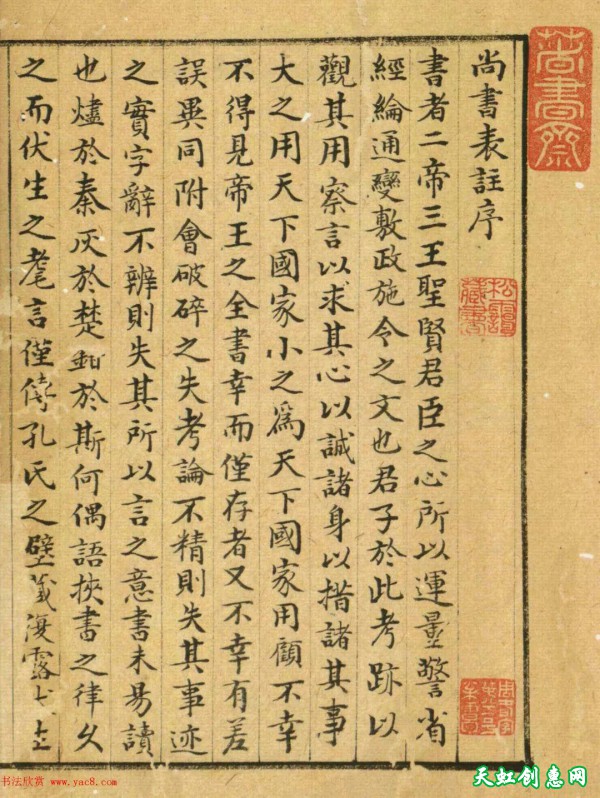 尚書表註序
書者二帝三王聖賢君臣之心所以運量警省
經綸通變敷政施令之文也君子於此考跡以
觀其用察言以求其心以誠諸身以措諸其事
大之用天下國家小之爲天下國家用顧不幸
不得見帝王之全書幸而僅存者又不幸有差
誤異同附會破碎之失考論不精則失其事迹
之實字辭不辨則失其所以言之意書未易讀
也燼於秦灰於楚 於斯何偶語挾書之律久
之而伏生之耄言僅傳孔氏之壁藏復露
尚書齋
松雪藏書
书法欣赏 www.yac8.com
天虹创惠网